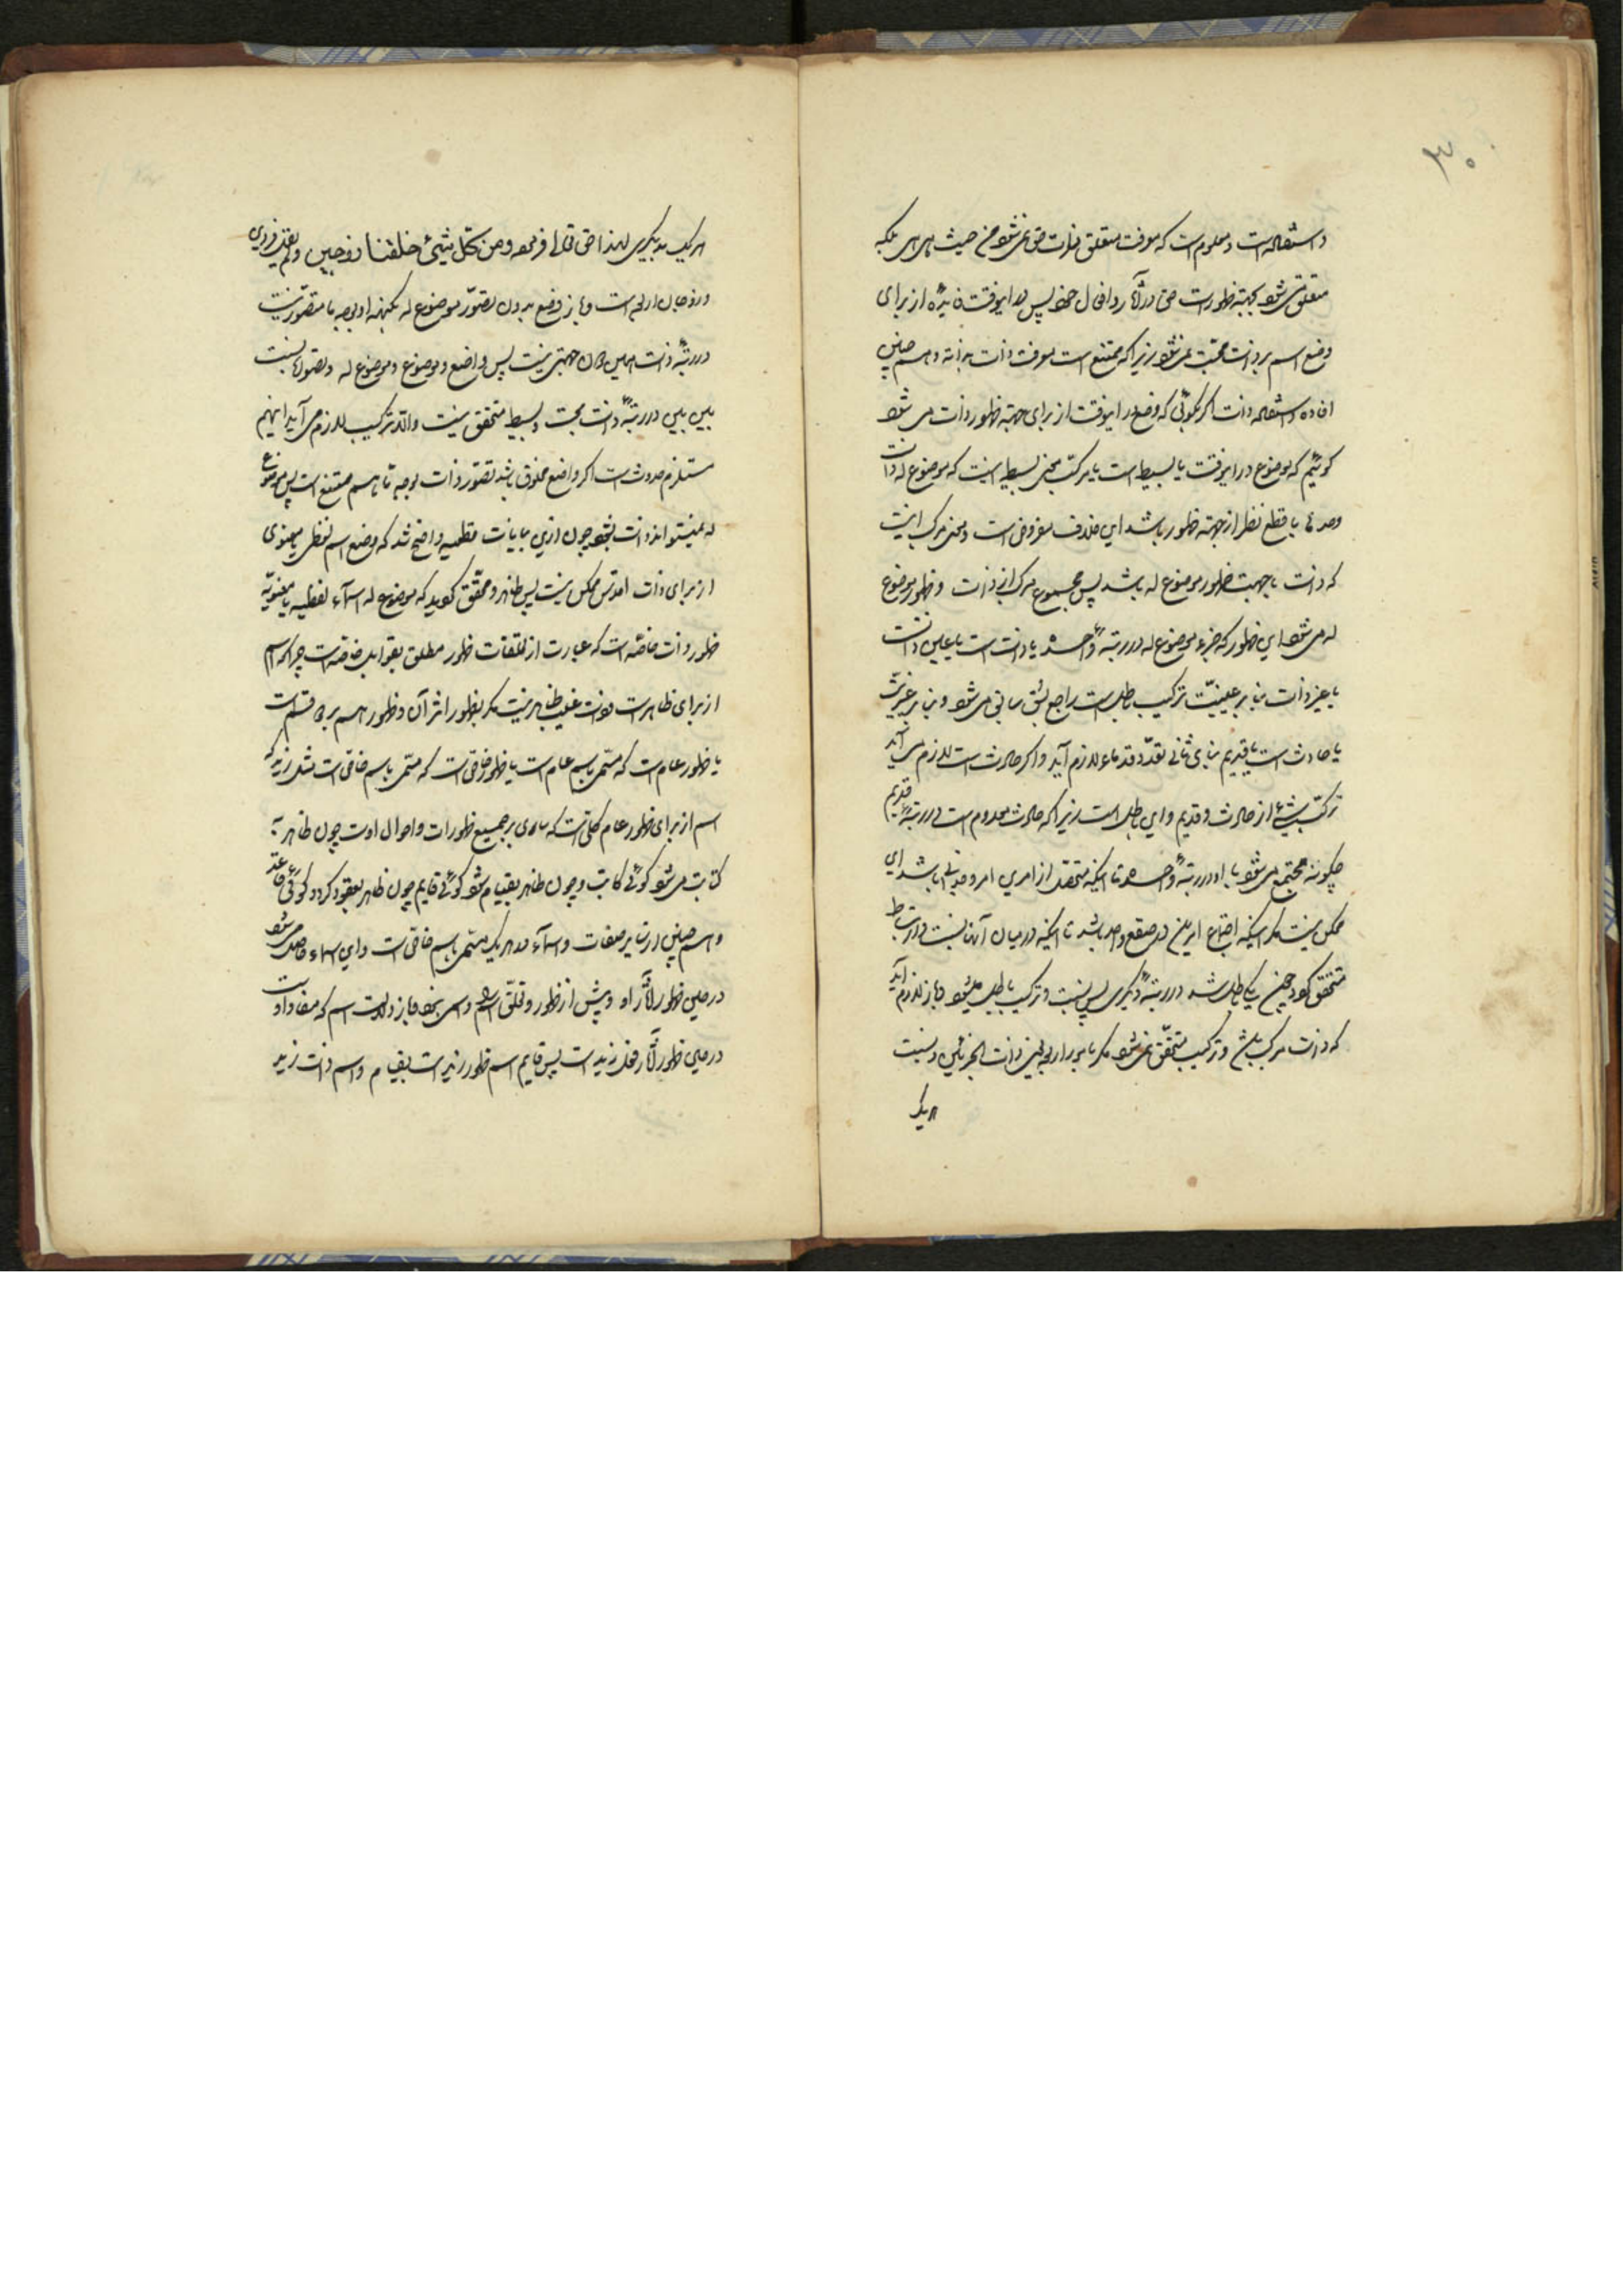 ۳۰
و استفاله است و معلوم است که معرفت متعلق بذات حق نمی شود من حیث هی هی بلکه
متعلق می شود بجهة ظهورات حق در آثار و افعال خود پس در اینوقت فایده از برای
وضع اسم بر ذات مترتب نمی شود زیرا که ممتنع است معرفت ذات بذاته و هم چنین
افاده و استفاله ذات اگر بگوئی که وضع در اینوقت از برای جهة ظهور ذات می شود
گوئیم که موضوع در اینوقت یا بسیط است یا مرکب معنی بسیط اینست که موضوع له ذات
وحدها با قطع نظر از جهة ظهور باشد این خلاف مفروض است و معنی مرکب اینست
که ذات با جهت ظهور موضوع له باشد پس مجموع مرکب از ذات و ظهور موضوع
له می شود این ظهور که جزء موضوع له در رتبهٔ واحده با ذات است یا عین ذات است
یا غیر ذات بنا بر عینیّت ترکیب باطل است راجع بشق سابق می شود و بنا بر غیریّت
یا حادث است یا قدیم بنا بر ثانی تعدّد قدماء لازم آید و اگر حادث است لازم می آید
ترکب شیئ از حادث و قدیم و این باطل است زیرا که حادث معدوم است در رتبهٔ قدیم
چگونه مجتمع می شود با او در رتبهٔ واحده تا اینکه متحقق از امری امر وحدانی باشد ای
ممکن نیست مگر اینکه اجتماع امرین در صقع واحد باشد تا اینکه در میان آنها نسبت و ارتباط
متحقق گردد چنین یکی باطل شد در رتبهٔ دیگری پس نسبت و ترکیب باطل میشود و باز لازم آید
که ذات مرکب باشد و ترکیب متحقق نمی شود مگر بامور اربعه یعنی ذات الجزئین و نسبت
هر یک
هر یک بدیگری لهذا حق تعالی فرموده و من کل شیئ خلقنا زوجین و لم یخلق فردی
و زوجان اربعه است و باز وضع بدون تصوّر موضوع له بکنهه او بوجه ما متصوّر نیست
در رتبهٔ ذات همین دون جهتی نیست پس واضع و موضوع و موضوع له و تصور و نسبت
بین بین در رتبهٔ ذات بحت و بسیط متحقق نیست و الّا ترکیب لازم می آید اینهم
مستلزم حدوث است اگر واضع مخلوق باشد تصوّر ذات بوجه ما هم ممتنع است پس موضوع
له نمیتواند ذات بشود چون ازین بیانات قطعیه واضح شد که وضع اسم لفظی یا معنوی
از برای ذات اقدس ممکن نیست پس ظاهر و محقّق گردید که موضوع له اسمآء لفظیه یا معنویّه
ظهور ذات خاصّه است که عبارت از تعلقات ظهور مطلق بقوابل خاصّه است چرا که اسم
از برای ظاهر است و ذات غیب ظاهر نیست مگر بظهور اثر آن و ظهور هم بر دو قسم است
یا ظهور عام است که مسمّی باسم عام است یا ظهور خاصّ است که مسمّی باسم خاصّ است مثلا زید که
اسم از برای ظهور عام کلّی است که ساری بر جمیع ظهورات و احوال اوست چون ظاهر به
کتابت می شود گوئی کاتب و چون ظاهر بقیام شود گوئی قایم چون ظاهر بقعود گردد گوئی قاعد
و هم چنین از سایر صفات و اسمآء که هر یک مسمّی باسم خاصّ است و این اسماء حاصل می شود
در حین ظهور آثار او و پیش از ظهور و تعلّق اسم و رسمی نبود و باز دلالت اسم که مفاد اوست
در حین ظهور آثار فعل زید است پس قایم اسم ظهور زید است بقیام و اسم ذات زید